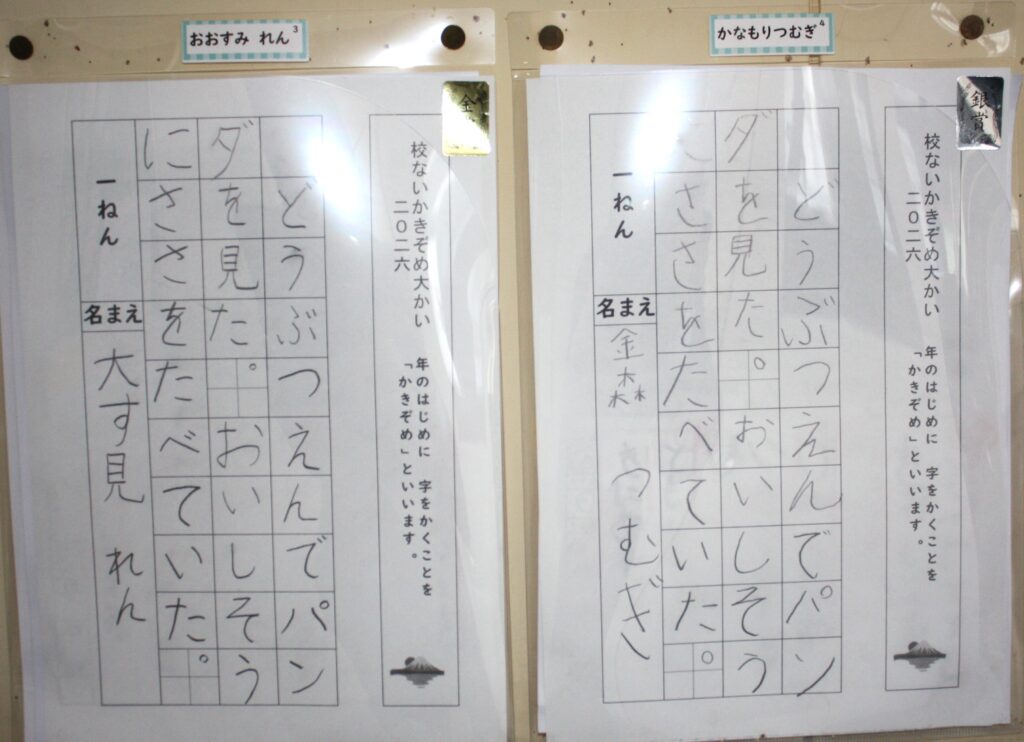 おおすみ れん 3
金
校ないかきぞめ大かい
二〇二六
年のはじめに 字をかくことを
「かきぞめ」といいます。
どうぶつえんでパン
ダを見た。おいしそう
にささをたべていた。
一ねん
名まえ
大す見 れん
かなもりつむぎ 4
銀賞
校ないかきぞめ大かい
二〇二六
年のはじめに 字をかくことを
「かきぞめ」といいます。
どうぶつえんでパン
ダを見た。おいしそう
にささをたべていた。
一ねん
名まえ
金森 つむぎ